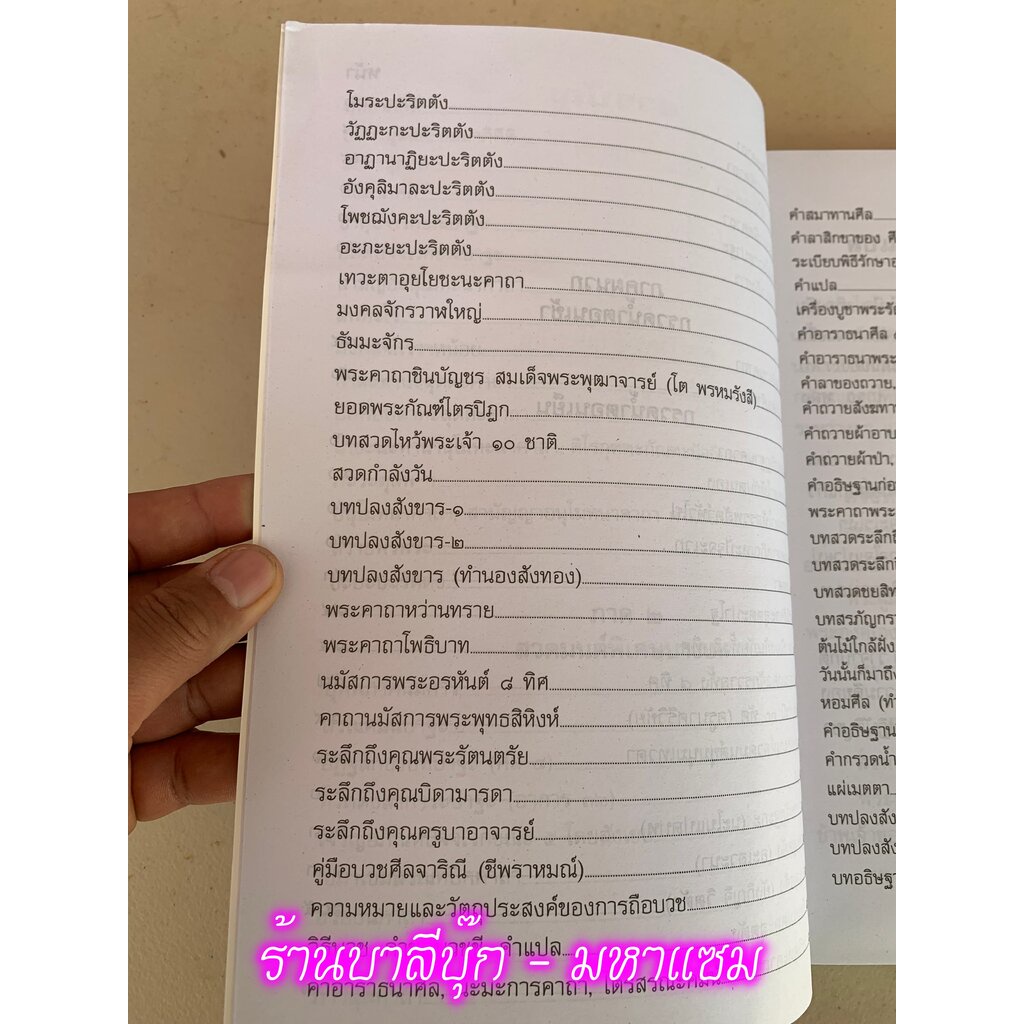 โมระปะริตตัง
วัฏฏะกะปะริตตัง
อาฏานาฏิยะปะริตตัง
อังคุลิมาละปะริตตัง
โพชฌังคะปะริตตัง
อะภะยะปะริตตัง
เทวะตาอุยโยชะนะคาถา
มงคลจักรวาฬใหญ่
ธัมมะจักร
พระคาถาชินบัญชร สมเด็จพระพุฒาจารย์ (โต พรหมรังสี)
ยอดพระกัณฑ์ไตรปิฎก
บทสวดไหว้พระเจ้า ๑๐ ชาติ
สวดกำลังวัน
บทปลงสังขาร-๑
บทปลงสังขาร-๒
บทปลงสังขาร (ทำนองสังทอง)
พระคาถาหว่านทราย
พระคาถาโพธิบาท
นมัสการพระอรหันต์ ๘ ทิศ
คาถานมัสการพระพุทธสิหิงห์
ระลึกถึงคุณพระรัตนตรัย
ระลึกถึงคุณบิดามารดา
ระลึกถึงคุณครูบาอาจารย์
คู่มือบวชศีลจาริณี (ชีพราหมณ์)
ความหมายและวัตถุประสงค์ของการถือบวช
คำแปล
คำอาราธนาศีล, นะมะการคาถา,
ร้านบาลีบุ๊ก - มหาแซม
คำสมาทานศีล
คำลาสิกขาของ
ระเบียบพิธีรักษา
คำแปล
เครื่องบูชาพระรั
คำอาราธนาศีล
คำอาราธนาพระ
คำลาของถวาย,
คำถวายสังฆทา
คำถวายผ้าอาบ
คำถวายผ้าป่า,
คำอธิษฐานก่อ
พระคาถาพระ
บทสวดระลึกถึ
บทสวดระลึกถึ
บทสวดชยสิท
บทสรภัญกรา
ต้นไม้ใกล้ฝั่ง
วันนั้นก็มาถึง
หอมศีล (ทำ
คำอธิษฐาน
คำกรวดน้ำ
แผ่เมตตา
บทปลงสัง
บทปลงสัง
บทอธิษฐา